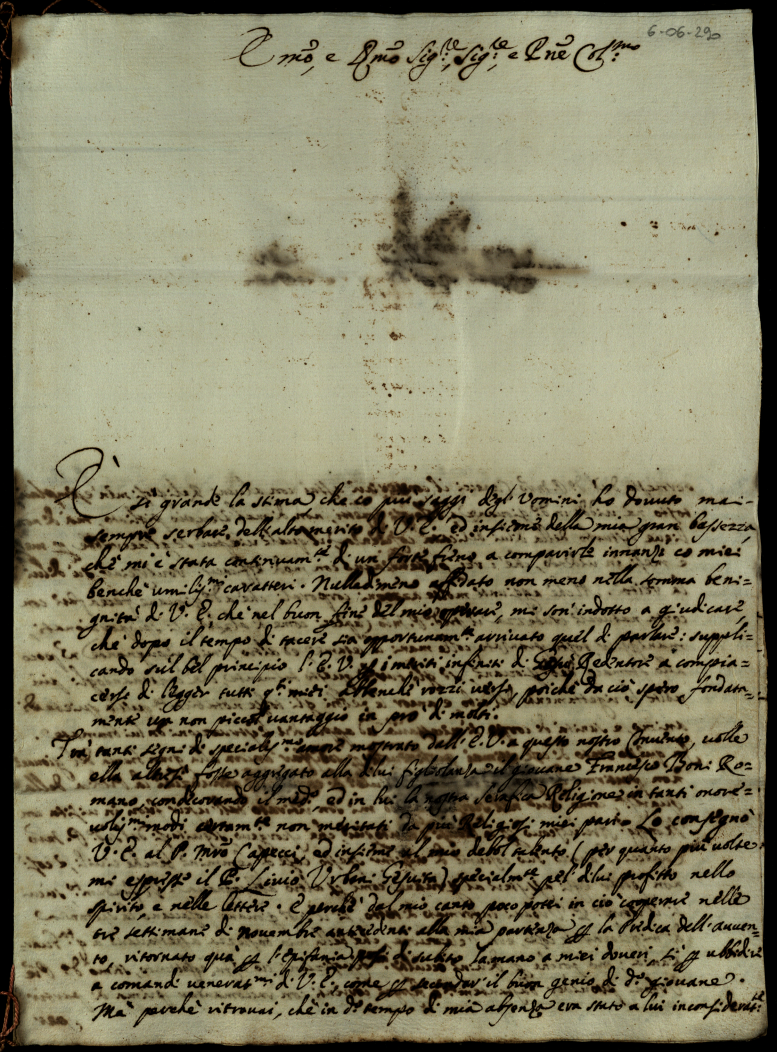 6-06-290
Emo, e Rmo Sig:re, Sig:re, e Pne Col:mo
È sì grande la stima che co più saggi degl'Uomini ho dovuto mai-
sempre serbare dell'alto merito di V. E. ed insieme della mia gran bassezza,
che mi è stata continuam:te di un forte freno a comparirle innanzi co miei
benchè umiliss:mi caratteri. Nulladimeno affidato non meno nella somma beni-
gnità di V. E. che nel buon fine del mio operare, mi son indotto a giudicare,
che dopo il tempo di tacere sia opportunam:te arrivato quel di parlare: suppli-
cando sul bel principio l'E. V. p i meriti infiniti di Gesù Redentore a compia-
cersi di legger tutti q:ti miei benchè rozzi versi, poichè da ciò spero fondata-
mente un non piccol vantaggio in pro di molti.
Trà tanti segni di specialiss:mo amore mostrato dall'E. V. a questo nostro Convento, volle
ella altresì fosse aggregato alla di lui figliolanza il giovane Francesco Boni Ro-
mano, condecorando il med:o, ed in lui la nostra Serafica Religione in tanti onore-
voliss:mi modi certam:te non meritati da più Religiosi miei pari. Lo consegnò
V. E. al P. Mro Capecci, ed insieme al mio debol talento (per quanto più volte
mi espresse il P. Livio Urbani Gesuita) specialm:te pel di lui profitto nello
spirito, e nelle lettere. E perchè dal mio canto poco potei in ciò cooperare nelle
tre settimane di novembre antecedenti alla mia partenza p la Predica dell'Avven-
to, ritornato quà p l'Epifania posi di subito la mano a miei doveri, sì p ubbidire
a comandi venerat:mi di V. E. come p secondar il buon genio di d:o giovane.
Mà perchè ritrovai, che in d:o tempo di mia assenza era stato a lui inconsiderat:te